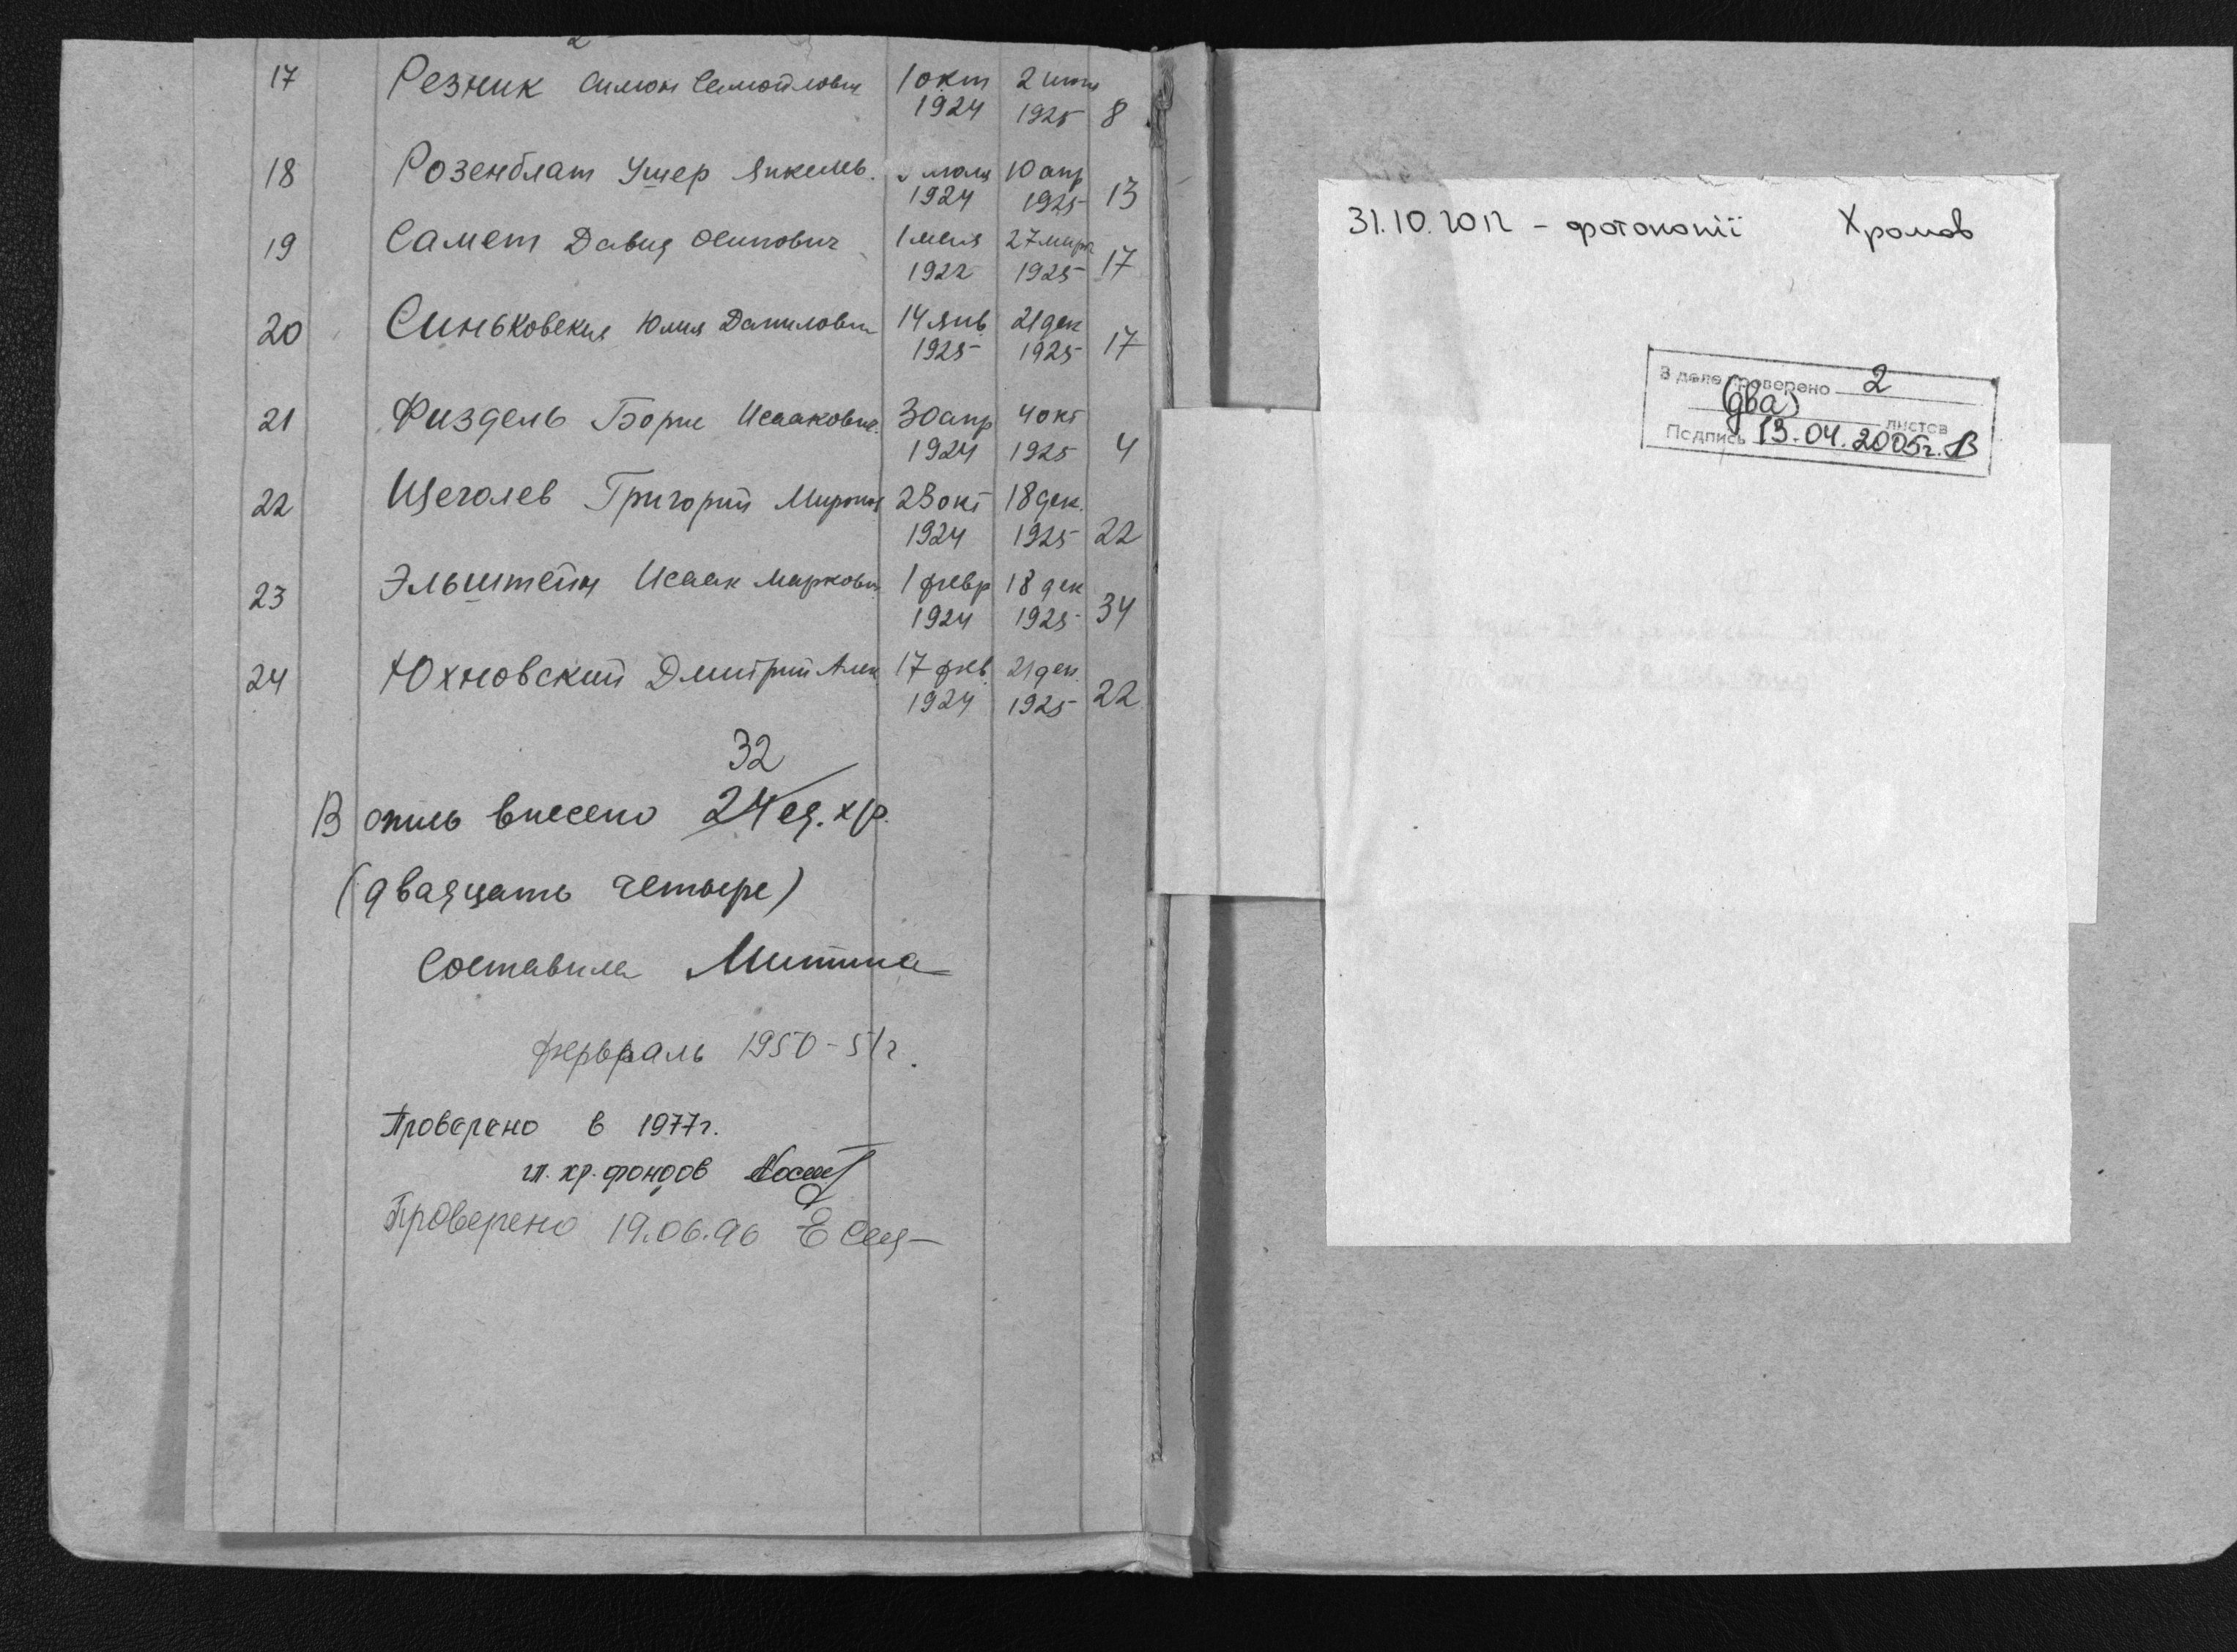 17 Резник Симон Самойлович 1 окт 2 июня
1924 1925 8
18 Розенблат Ушер Янкелев. июля 10 апр
1924 1925 13
19 Самет Давид Осипович 1 мая 27 мар
1922 1925 17
20 Синьковская Юлия Даниловн 14 янв. 21 дек
1925 1925 17
21 Физдель Борис Исаакович. 30 апр 4 окт
1924 1925 4
22 Щеголев Григорий Миронов 23 окт 18 дек.
1924 1925 22
23 Эльштейн Исаак Маркович 1 февр 18 дек
1924 1925 34
24 Юхновский Дмитрий Алек. 17 фев. 21 дек.
1924 1925 22
32
В опись внесено 24 ед. хр.
(двадцать четыре)
Составила Митина
феврраль 1950-51г.
Проверено в 1977г.
гл. хр. фондов
Проверено 19.06.96
31.10.2012 - фотокопії Хромов
В деле проверено 2
(два) листов
Подпись 13.04.2005г.